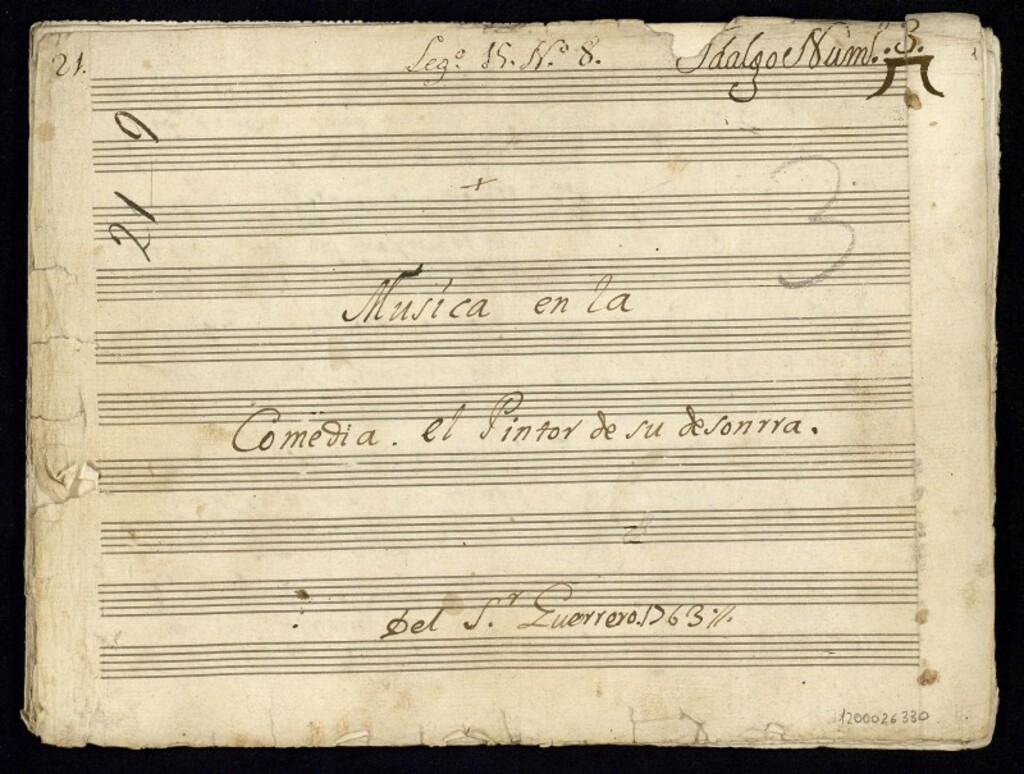 21. Leg.º 15. N.º 8. Idalgo Num.º 3.
9
21
+
3
Musica en la
Comedia. el Pintor de su desonrra.
Del S.r Guerrero. 1763 //.
1200026330